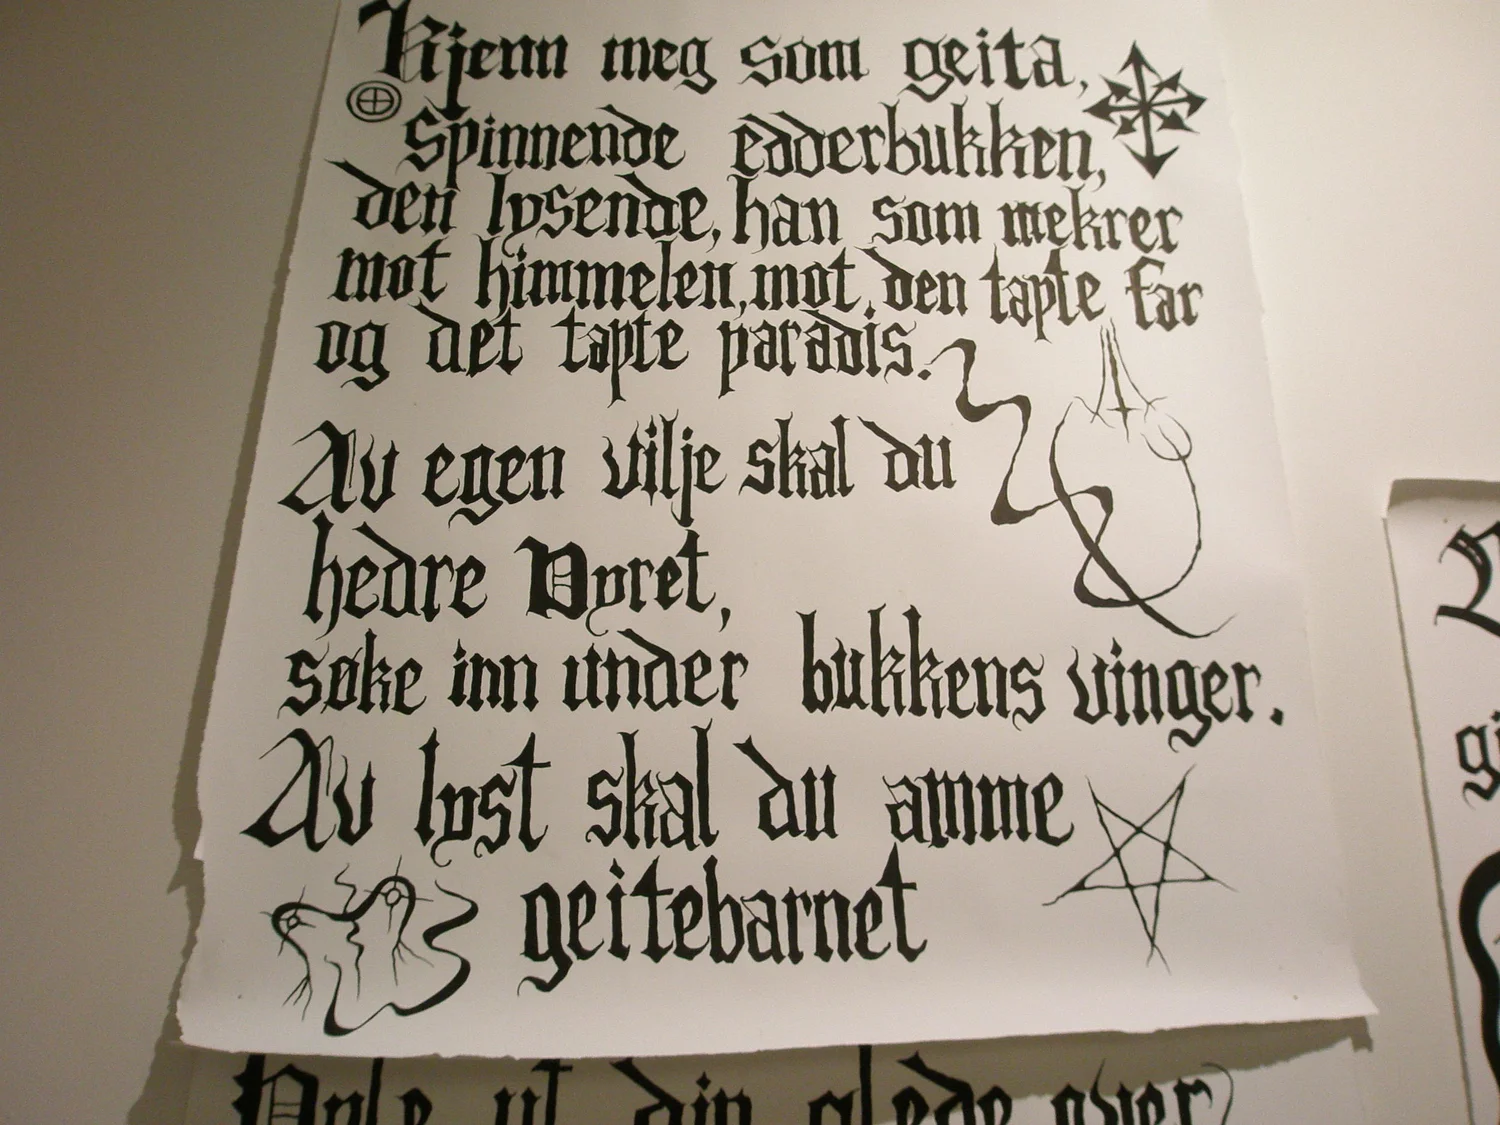 Kjenn meg som geita,
spinnende edderbukken,
den lysende, han som mekrer
mot himmelen, mot den tapte far
og det tapte paradis.
Av egen vilje skal du
hedre Dyret,
søke inn under bukkens vinger.
Av lyst skal du amme
geitebarnet
ut din glede over